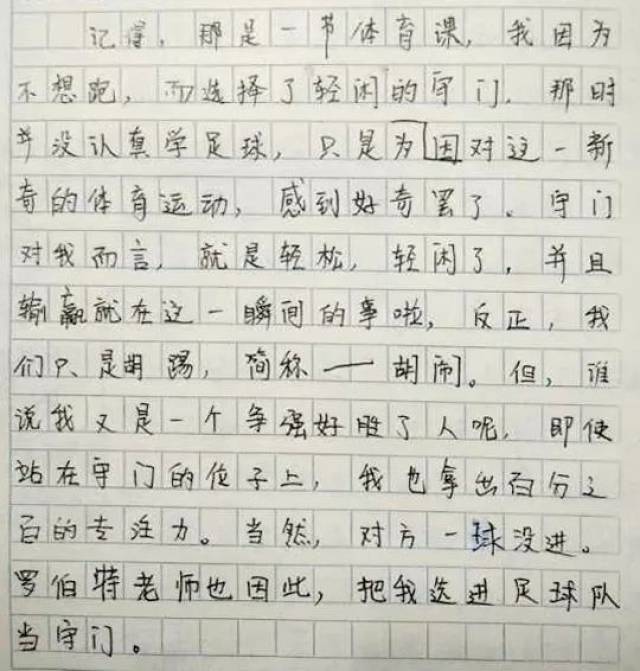 记得，那是一节体育课，我因为
不想跑，而选择了轻闲的守门，那时
并没认真学足球，只是为因对这一新
奇的体育运动，感到好奇罢了。守门
对我而言，就是轻松，轻闲了，并且
输赢就在这一瞬间的事啦，反正，我
们只是胡踢，简称——胡闹。但，谁
说我又是一个争强好胜了人呢，即使
站在守门的位子上，我也拿出百分之
百的专注力。当然，对方一球没进。
罗伯特老师也因此，把我选进足球队
当守门。